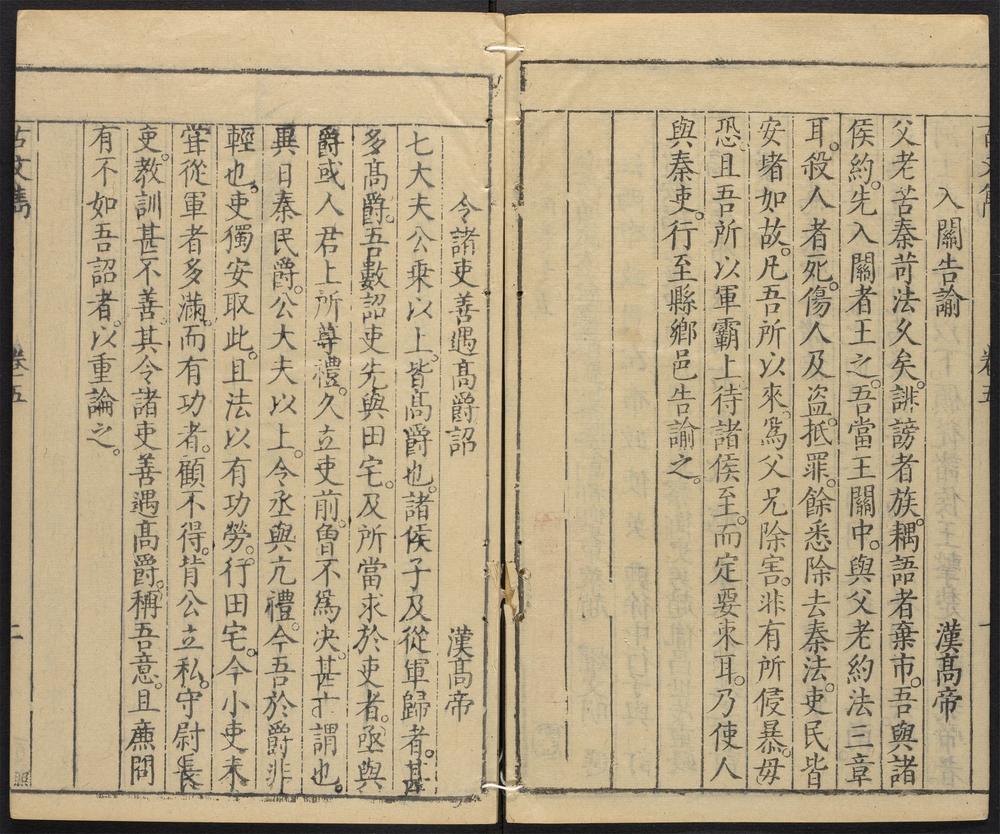 入關告諭 漢髙帝
父老苦秦苛法久矣。誹謗者族。耦語者棄市。吾與諸
侯約。先入關者王之。吾當王關中。與父老約法三章
耳。殺人者死。傷人及盜。抵罪。餘悉除去秦法。吏民皆
安堵如故。凡吾所以來。爲父兄除害。非有所侵暴。毋
恐。且吾所以軍霸上待諸侯至。而定要束耳。乃使人
與秦吏。行至縣鄉邑告諭之。
卷五
令諸吏善遇髙爵詔 漢髙帝
七大夫公乘以上。皆髙爵也。諸侯子及從軍歸者。甚
多髙爵。吾數詔吏先與田宅。及所當求於吏者。亟與
爵或人君上所尊禮。久立吏前。曾不爲决。甚亡謂也。
異日秦民爵。公大夫以上。令丞與亢禮。今吾於爵非
輕也。吏獨安取此。且法以有功勞。行田宅。今小吏未
嘗從軍者多滿。而有功者。顧不得。背公立私。守尉長
吏。教訓甚不善。其令諸吏善遇髙爵。稱吾意。且廉問
有不如吾詔者。以重論之。
古文雋 卷五 二